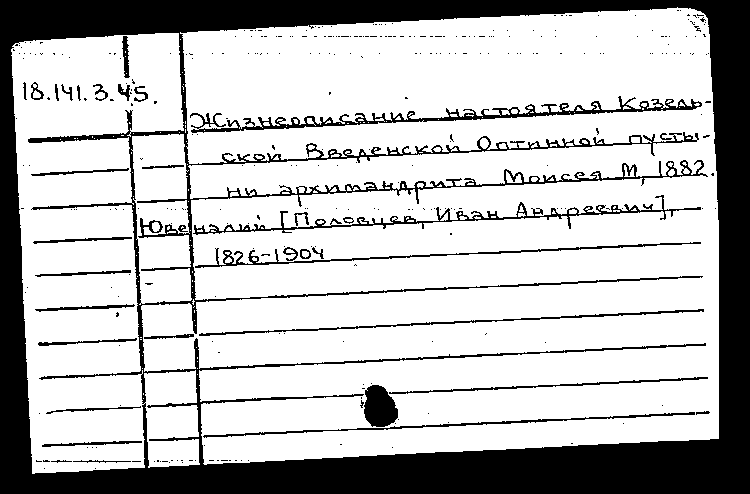 18.141.3.45.
Жизнеописание настоятеля Козель-
ской Введенской Оптинной пусты-
ни архимандрита Моисея М, 1882.
Ювеналий [Половцев, Иван Андреевич],
1826-1904